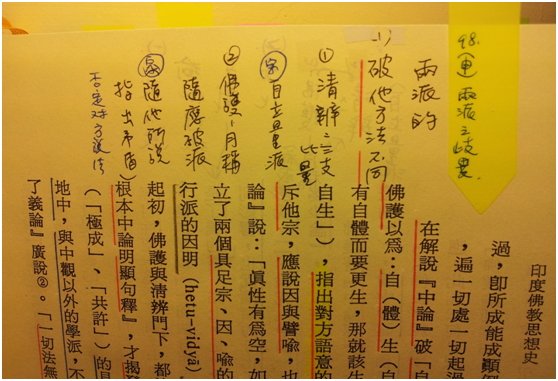 98.(申)兩派之歧異
兩派的
1) 破他方法不同
① 清辨:三支比量
(宗)自立量派
② 佛護、月稱
隨應破派
(破)隨他所說
指出矛盾
否定对方說法
印度佛教思想史
過,即所成能成顯
,遍一切處一切起過
在解說『中論』破「自
佛護以為:自(體)生(自
有自體而要更生,那就該生
自生」),指出對方語意的
斥他宗,應說因與譬喻,也
論』說:「眞性有為空,如
立了兩個具足宗、因、喻的
行派的因明(hetu-vidyā)
起初,佛護與清辨門下,都
根本中論明顯句釋』,才揭
(「極成」、「共許」)的
地中,與中觀以外的學派,不
了義論』廣說②。「一切法無